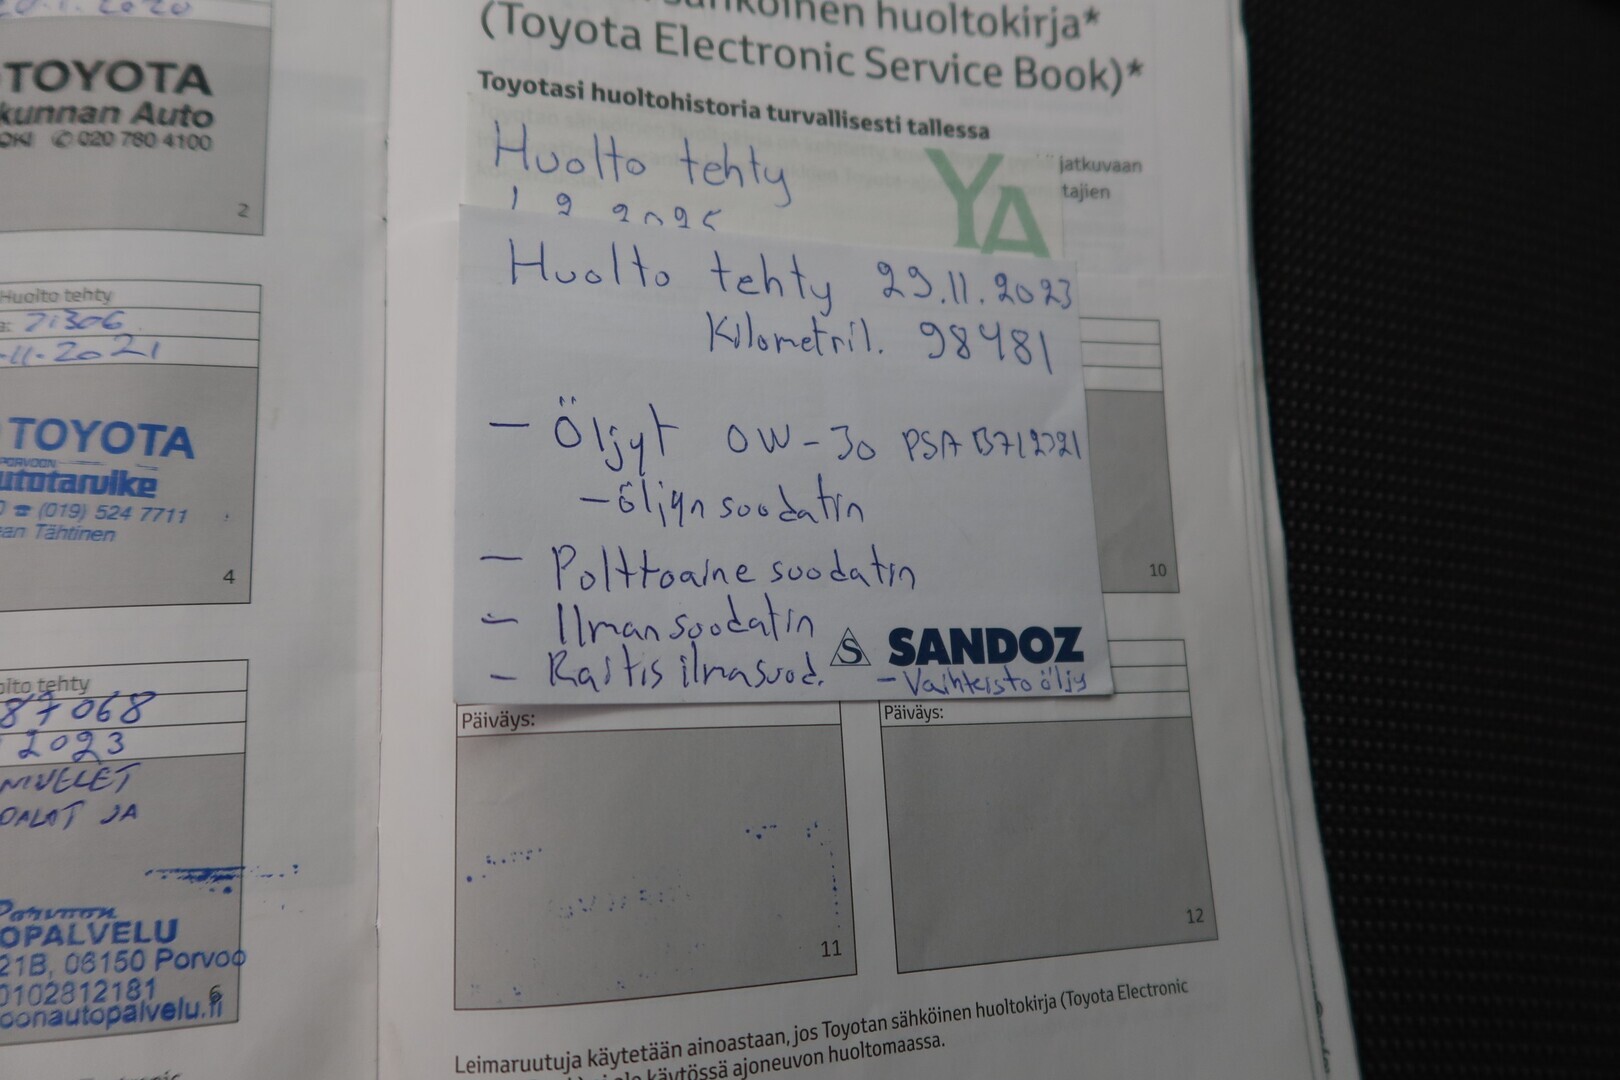 2020
TOYOTA
kunnan Auto
020 780 4100
2
Huolto tehty
71306
-11-2021
TOYOTA
PORVOON
utotarvike
(019) 524 7711
Tähtinen
4
olto tehty
87068
2023
NIVELET
JA
Porvoon
OPALVELU
21B, 06150 Porvoo
0102812181
oonautopalvelu.fi
6
sähköinen huoltokirja*
(Toyota Electronic Service Book)*
Toyotasi huoltohistoria turvallisesti tallessa
jatkuvaan
tajien
Huolto tehty
YA
Huolto tehty 29.11.2023
Kilometril. 98481
- Öljyt 0W-30 PSA B712321
- öljyn suodatin
- Polttoaine suodatin
- Ilman suodatin
- Raitis ilmasuod.
S SANDOZ
- Vaihteisto öljy
10
Päiväys:
11
Päiväys:
12
Leimaruutuja käytetään ainoastaan, jos Toyotan sähköinen huoltokirja (Toyota Electronic
ole käytössä ajoneuvon huoltomaassa.